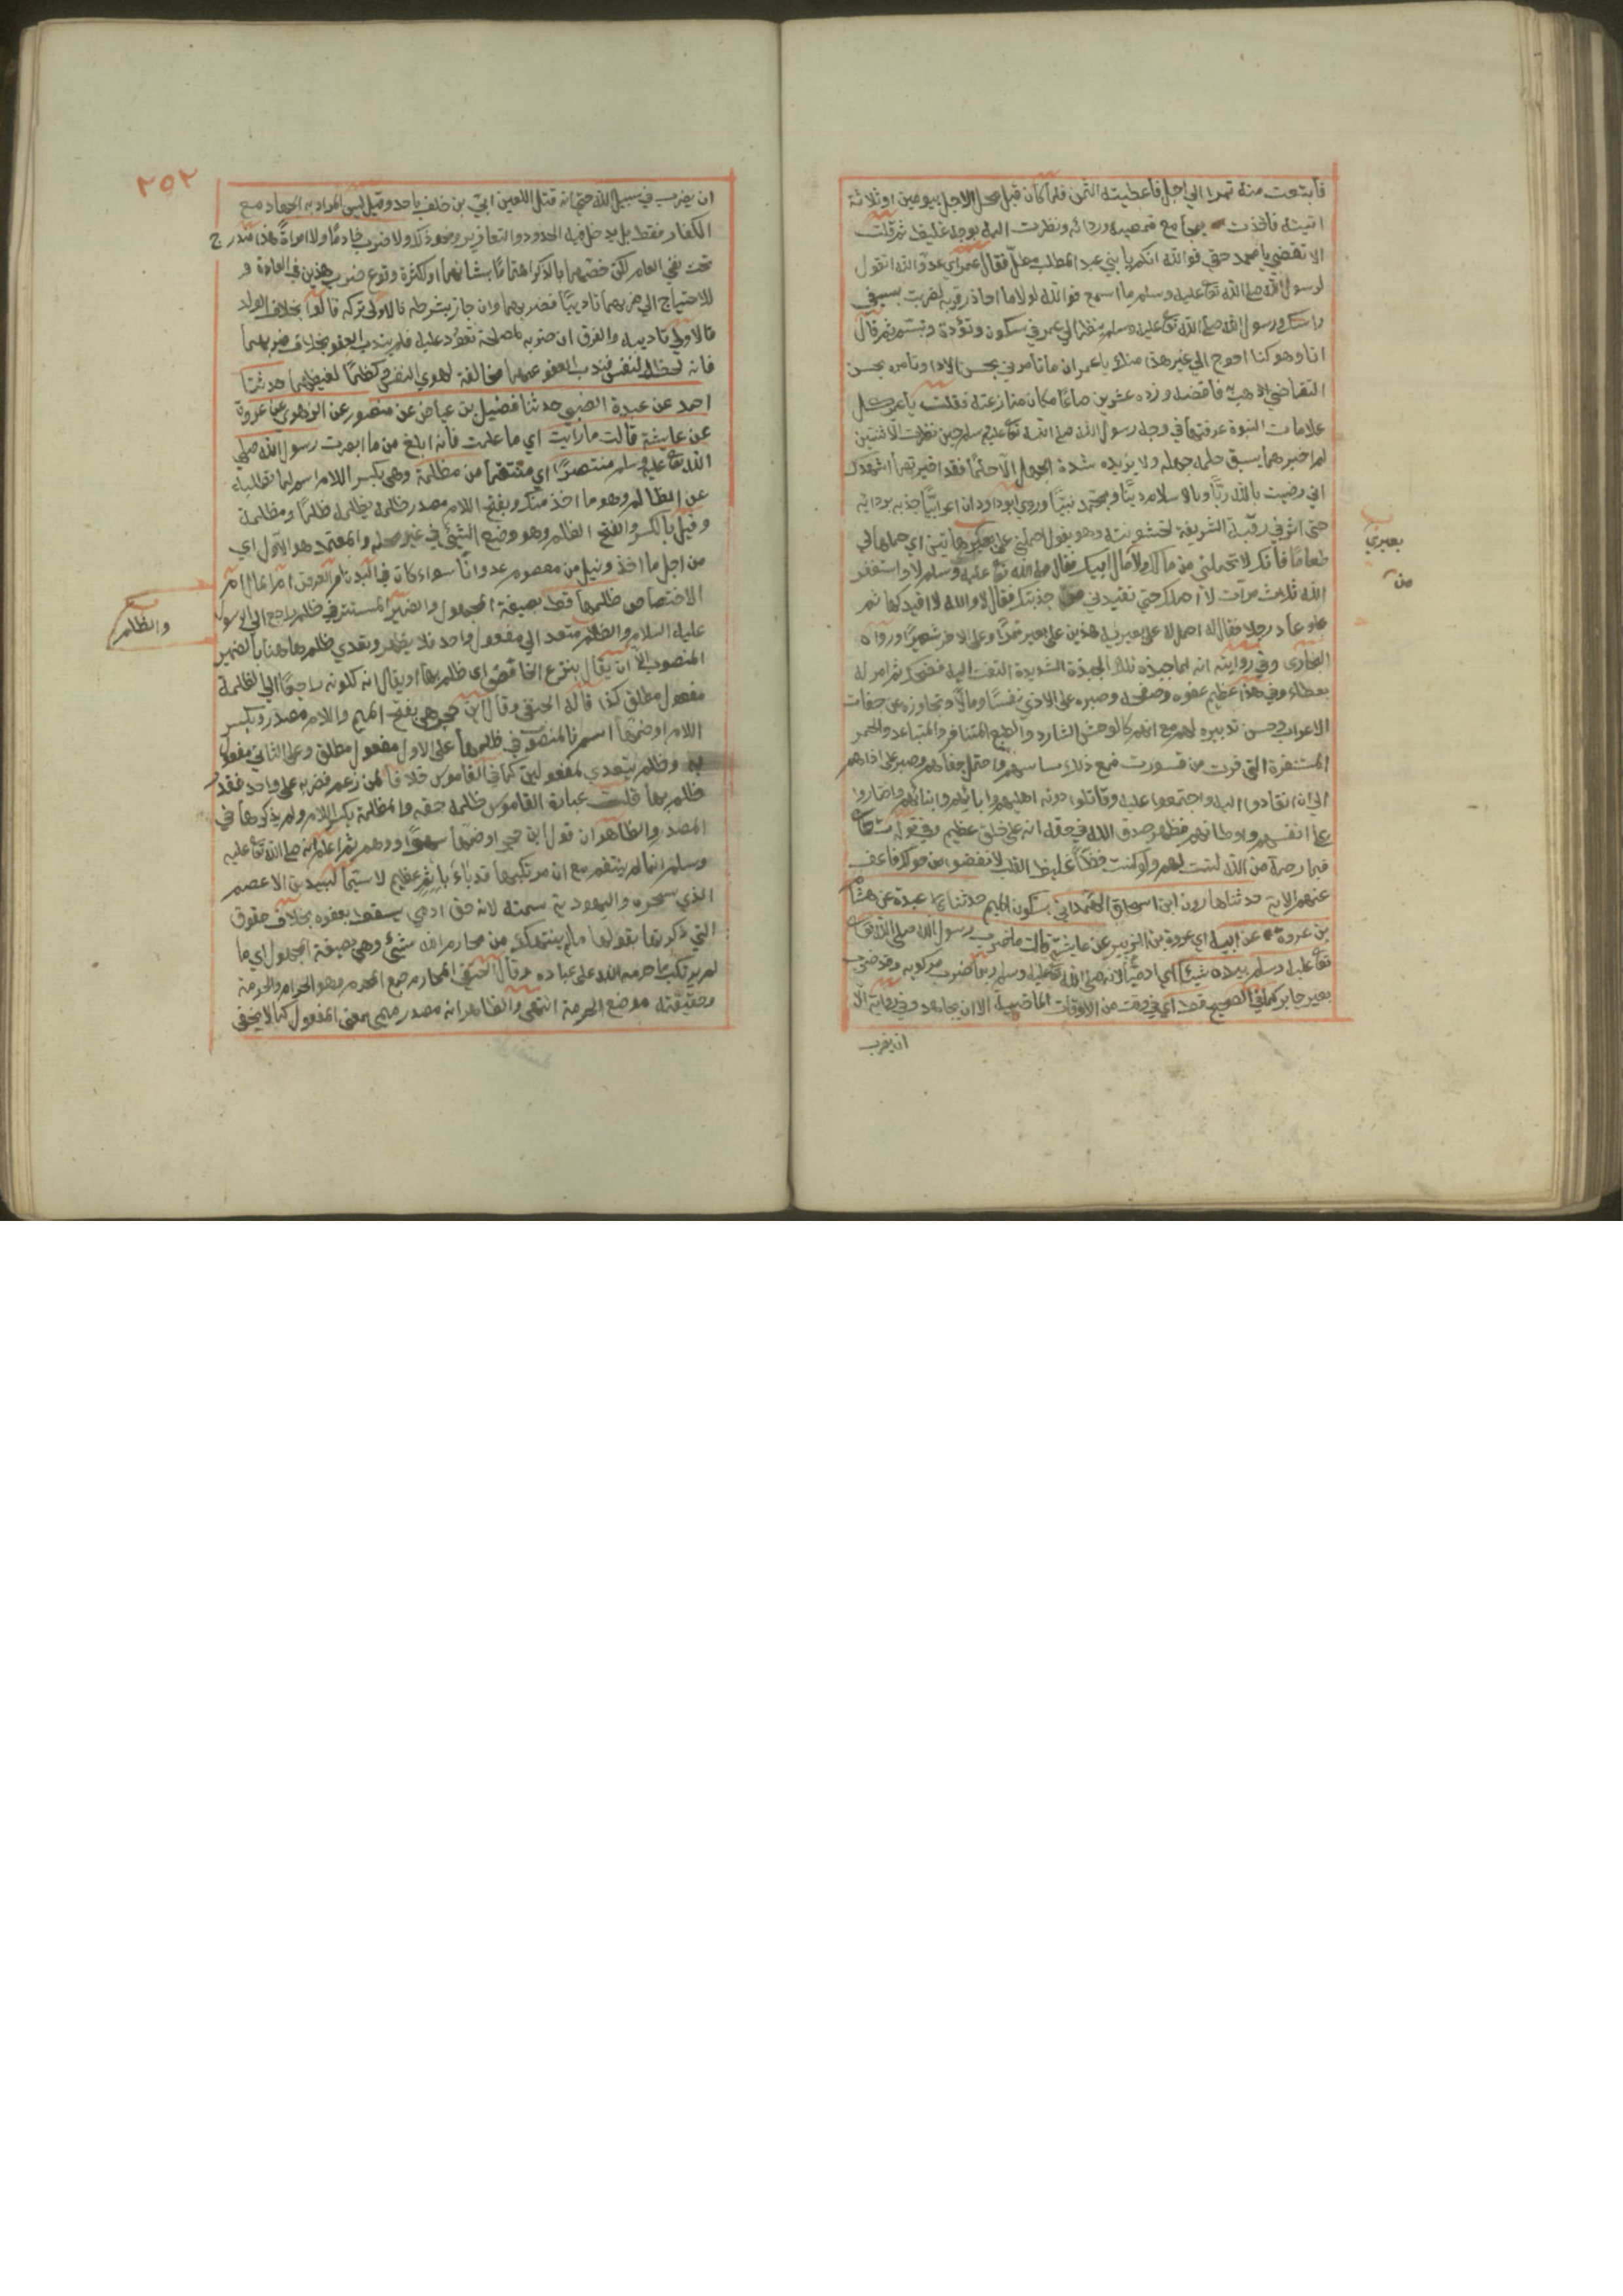 فابتعت منه تمرا الي اجل فاعطيته الثمن فلما كان قبل محل الاجل بيومين او ثلاثة
اتيته فاخذت بمجامع قميصه وردائه ونظرت اليه بوجه غليظ ثم قلت
الا تقضي يا محمد حقي فوالله انكم يا بني عبد المطلب مطل فقال عمر اي عدو الله اتقول
لرسول الله صلى الله تعا عليه وسلم ما اسمع فوالله لولا ما احاذر قربه لضربت بسيفي
راسك ورسول الله صلى الله تعا عليه وسلم ينظر الي عمر في سكون وتؤدة وتبسم ثم قال
انا وهو كنا احوج الي غير هذا منك يا عمر ان تامرني بحسن الاداء وتامره بحسن
التقاضي اذهب به فاقضه وزده عشرين صاعا مكان ما زعته فقلت يا عمر كل
علامات النبوة عرفتها في وجه رسول الله صلى الله تعا عليه وسلم حين نظرت الا اثنتين
لم اخبرهما يسبق حلمه جهله ولا يزيده شدة الجهل الا حلما فقد اخبرتهما اشهدك
اني رضيت بالله ربا وبالاسلام دينا وبمحمد نبيا وروي ابو داود ان اعرابيا جذبه بردائه
حتى اثر في رقبته الشريفة لخشونته وهو يقول احملني على بعيري هاتين اي حملهما لي
طعاما فانك لا تحملني من مالك ولا مال ابيك فقال صلى الله تعا عليه وسلم لا واستغفر
الله ثلاث مرات لا احملك حتى تقيدني من جذبتك فقال لا والله لا اقيدكها ثم
دعا رجلا فقال له احمل له على بعيريه هذين على بعير تمرا وعلى الاخر شعيرا ورواه
البخارى وفي روايته انه لما جبذه تلك الجبذة الشديدة التفت اليه فضحك ثم امر له
بعطاء وفي هذا عظيم عفوه وصفحه وصبره على الاذي نفسا ومالا وتجاوزه عن جفات
الاعراب وحسن تدبيره لهم مع انهم كالوحش الشارد والطبع المتنافر والمتباعد والحمر
المستنفرة التي فرت من قسورت فمع ذلك ساسهم واحتمل جفاهم وصبر على اذاهم
الي ان انقادوا اليه واجتمعوا عليه وقاتلوا دونه اهليهم وابائهم وابنائهم واختاروا
على انفسهم واوطانهم فظهر صدق الله في حقه انه على خلق عظيم وفي قوله تعا
فبما رحمة من الله لنت لهم ولو كنت فظا غليظ القلب لانفضوا من حولك فاعف
عنهم الاية حدثنا هارون ابن اسحاق الهمداني بسكون الميم حدثنا عبدة عن هشام
بن عروة عن ابيه اي عروة بن الزبير عن عايشة قالت ما ضرب رسول الله صلى الله تعا
تعا عليه وسلم بيده شيئا اي ادميا لانه صلى الله تعا عليه وسلم ربما ضرب مركوبه وقد ضرب
بعير جابر كما في الصحيح قط اي في وقت من الاوقات الماضية الا ان يجاهد وفي رواية الا
ان يضرب
بعيري
من
٢٥٢
ان يضرب في سبيل الله حتى انه قتل اللعين ابي بن خلف باحد وقيل ليس المراد به الجهاد مع
الكفار فقط بل يدخل فيه الحدود والتعازير ونحو ذلك ولا ضرب خادما ولا امراة هذا مندرج
تحت نفي العام لكن خصهما بالذكر اهتماما بشانهما او لكثرة وقوع ضرب هذين في العادة و
للاحتياج الي ضربهما تاديبا فضربهما وان جاز بشرطه فالاولى تركه قالوا بخلاف الولد
فالاولى تاديبه والفرق ان ضربه لمصلحة تعود عليه فلم يندب العفو بخلاف ضربهما
فانه لحظ النفس فندب العفو عنهما مخالفة لهوي النفس وكظما لغيظهما حدثنا
احمد عن عبدة الضبي حدثنا فضيل بن عياض عن منصور عن الزهري عن عروة
عن عايشة قالت ما رايت اي ما علمت فانه ابلغ من ما ابصرت رسول الله صلى
الله تعا عليه وسلم منتصرا اي منتقما من مظلمة وهي بكسر اللام اسم لما تطالبه
عن الظالم وهو ما اخذ منك وبفتح اللام مصدر ظلمه يظلمه ظلما ومظلمة
وقيل بالكسر والفتح الظلم وهو وضع الشيئ في غير محله والمعتمد هو الاول اي
من اجل ما اخذ ونيل من معصوم عدوانا سواء كان في البدن ام العرض ام المال ام
الاختصاص ظلمها قط بصيغة المجهول والضمير المستتر في ظلم راجع الي الرسول
عليه السلام والظلم متعد الي مفعول واحد فلا يظهر وتعدي ظلم هاهنا بالضمير
المنصوب الا ان يقال بنزع الخافض اي ظلم بها او يقال انه لكونه راجعا الي المظلمة
مفعول مطلق كذا قاله الحنفي وقال ابن حجر هي بفتح الميم واللام مصدر وبكسر
اللام او ضمها اسم فالمنصوب في ظلمها على الاول مفعول مطلق وعلى الثاني مفعول
به وظلم يتعدي لمفعولين كما في القاموس خلافا لمن زعم قصره على واحد فقدر
ظلم بها قلت عبارة القاموس ظلمه حقه والمظلمة بكسر اللام ولم يذكرها في
المصدر والظاهر ان قول ابن حجر او ضمها سهو او وهم ثم اعلم انه صلى الله تعا عليه
وسلم انما لم ينتقم مع ان مرتكبها قد باء باثم عظيم لا سيما لبيد بن الاعصم
الذي سحره واليهودية سمته لانه حق ادمي يسقط بعفوه بخلاف حقوق
التي ذكرتها بقولها ما لم ينتهك من محارم الله شيئ وهي بصيغة المجهول اي ما
لم يرتكب مما حرمه الله على عباده وقال الحنفي المحارم جمع المحرم وهو الحرام والحرمة
وحقيقته موضع الحرمة انتهى والظاهر انه مصدر ميمي بمعنى المفعول كما لا يخفى
والظلم